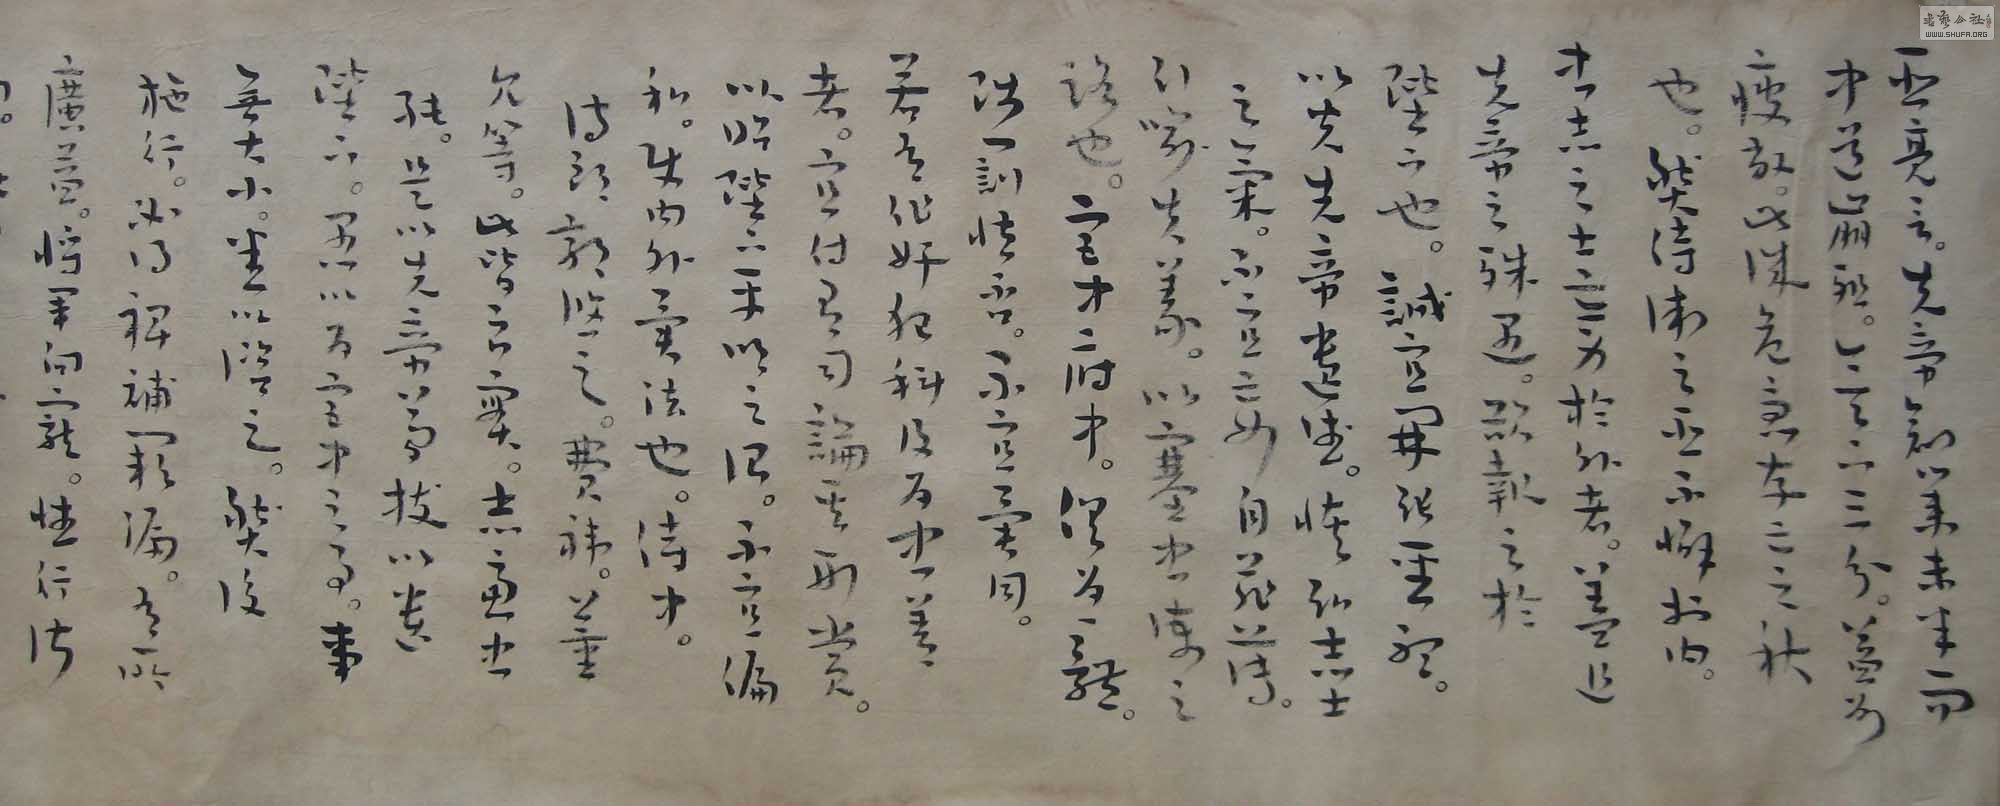 臣亮言。先帝創業未半而
中道崩殂。今天下三分。益州
疲敝。此誠危急存亡之秋
也。然侍衛之臣不懈於内。
忠志之士亡身於外者。蓋追
先帝之殊遇。欲報之於
陛下也。誠宜開張聖聽。
以光先帝遺德。恢弘志士
之氣。不宜妄自菲薄。
引喻失義。以塞忠諫之
路也。宮中府中。俱為一體。
陟罰臧否。不宜異同。
若有作奸犯科及為忠善
者。宜付有司論其刑賞。
以昭陛下平明之治。不宜偏
私。使内外異法也。侍中。
侍郎郭攸之。費禕。董
允等。此皆良實。志慮忠
純。是以先帝簡拔以遺
陛下。愚以為宮中之事。事
無大小。悉以諮之。然後
施行。必得裨補闕漏。有所
廣益。將軍向寵。性行淑
書藝公社
WWW.SHUFA.ORG